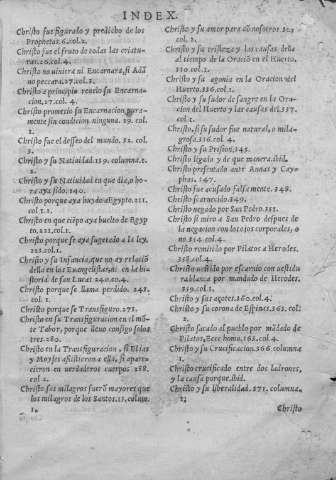 INDEX.
Christo fue figurado y predicho de los
Prophetas. 6. col. 2.
Christo fue el fruto de todas las criatu-
ras. 26. col. 4.
Christo no viniera ni Encarnara, si Adã
no peccara. 27. col.
Christo a principio reuelo su Encarna-
cion, 27. col. 4.
Christo prometio su Encarnacion, pura-
mente sin condicion ninguna. 29. col.
1.
Christo fue el desseo del mundo. 32. col.
Christo y su Natiuidad. 139. columna. 1.
Christo y su Natiuidad en que dia, o ho-
ra aya sido. 140.
Christo porque aya huydo a Egypto. 211.
col. 1. 2.
Christo en que tiẽpo aya buelto de Egyp
to. 222, col. 1.
Christo porque se aya sugetado a la ley.
223. col. 1.
Christo y su Infancia, que no ay relaciõ
della en los Euangelistas, sino en la his-
toria de san Lucas. 240. co. 4.
Christo porque se llama perdido. 241.
col. 1.
Christo porque se Transfiguro. 271.
Christo en su Transfiguracion en el mõ-
te Tabor, porque lleuo consigo solos
tres. 280.
Christo en la Transfiguracion, si Elias
y Moyses assistieron a ella, si apare-
cieron en verdaderos cuerpos 288.
col. 2.
Christo sus milagros fuerõ mayores que
los milagros de los Santos. 13, colum.
Christo y su amor para cõ nosotros 303
col. 2.
Christo y su tristeza y las causas della
al tiempo de la Oraciõ en el Huerto.
330. col. 1.
Christo y su agonia en la Oracion del
Huerto. 336. col. 1.
Christo y su sudor de sangre en la Ora-
cion del Huerto y las causas del 337.
col. 1.
Christo, si su sudor fue natural, o mila-
grosa. 336. col. 4.
Christo y su Prision. 345.
Christo ligado y de que manera. ibid.
Christo presentado ante Annas y Cay-
phas. 347.
Christo fue acusado falsamente. 348.
Christo escarnecido. 349.
Christo negado por San Pedro. 351.
Christo si miro a San Pedro despues de
la negacion con los ojos corporales, o
no 354. col. 4.
Christo remitido por Pilatos a Herodes.
358. col. 4.
Christo vestido por escarnio con vestidu
ra blanca por mandado de Herodes.
359. col. 1.
Christo y sus açotes. 360. col. 4.
Christo y su corona de Espinas. 363. col.
2.
Christo sacado al pueblo por mãdado de
Pilatos, Ecce homo. 365. col. 4.
Christo y su Crucificacion. 366. columna
Christo crucificado entre dos ladrones,
y la causa porque. ibid.
Christo y su liberalidad. 371. columna.
Christo